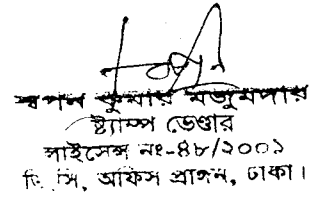 স্বপন কুমার মজুমদার
ষ্ট্যাম্প ভেণ্ডার
লাইসেন্স নং-৪৮/২০০১
ডি, সি, অফিস প্রাঙ্গন, ঢাকা।